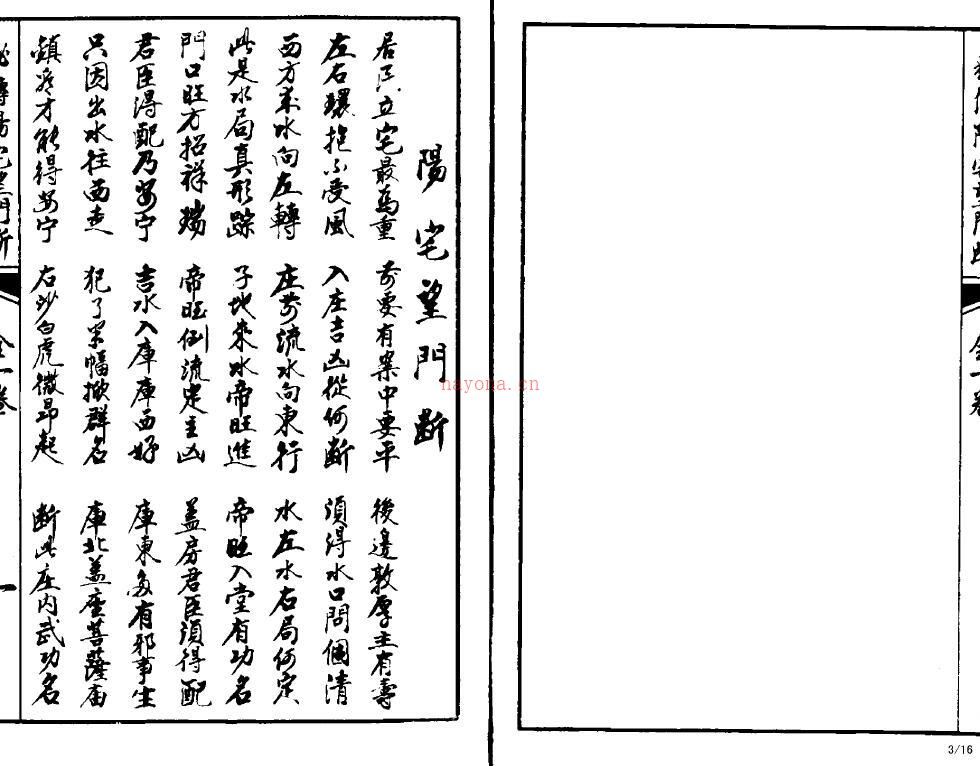 陽宅望門斷
居民立宅最爲重 前要有案中要平 後邊敦厚主有壽
左右環抱不受風 入庄吉凶從何斷 須得水口問個清
西方來水向左轉 庄前流水向東行 水左水右局何定
此是水局真形踪 子地來水帝旺進 帝旺入堂有功名
門口旺方招祥瑞 帝旺倒流定主凶 蓋房君臣須得配
君臣得配乃安宁 吉水入庫庫西好 庫東多有邪事生
只因出水往西走 犯了幅掀群名 庫北蓋座菩薩庙
鎮才能得安宁 右沙白虎微昂起 斷此庄内武功名
秘傳陽宅望門斷 全一卷 一
nayona.cn
3/16